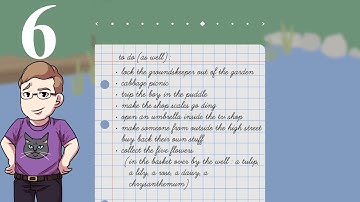 6
to do (as well):
• lock the groundskeeper out of the garden
• cabbage picnic
• trip the boy in the puddle
• make the shop scales go ding
• open an umbrella inside the tv shop
• make someone from outside the high street
buy back their own stuff
• collect the five flowers
(in the basket over by the well: a tulip,
a lily, a rose, a daisy, a
chrysanthemum)